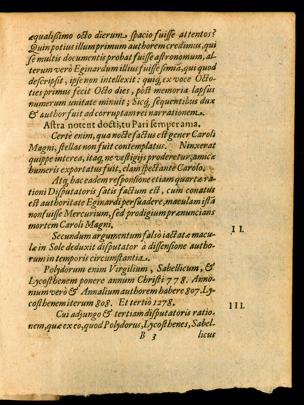 æqualissimo octo dierum spacio fuisse attentos?
Quin potius illum primum authorem credimus, qui
se multis documentis probat fuisse astronomum, al-
terum verò Eginardum illius fuisse simiã, qui quod
descripsit, ipse non intellexit: quiq́, ex voce Octo-
ties primus fecit Octo dies, pòst memoria lapsus
numerum unitate minuit; Sicq́, sequentibus dux
& author fuit ad corruptam rei narrationem.
Astra notent docti, tu Pari semper
Certè enim, qua nocte factus est gener Caroli
Magni, stellas non fuit contemplatus. Ninxerat
quippe interea, itaq́, ne vestigijs proderetur, amicæ
humeris exportatus fuit, clàm spectante Carolo.
Atq́, hac eadem responsione etiam quartæ ra-
tioni Disputatoris satis factum est, cùm conatus
est authoritate Eginardi persuadere, maculam istã
non fuisse Mercurium, sed prodigium prænuncians
mortem Caroli Magni,
Secundum argumentum falsò iactatæ macu-
læ in Sole deduxit disputator à dissensione autho-
rum in temporis circumstantia.
II.
Polydorum enim Vergilium, Sabellicum, &
Lycosthenem ponere annum Christi 778. Anno-
nium verò & Annalium authorem habere 807. Ly-
costhenem iterum 808. Et tertiò 1278.
Cui adjungo & tertiam disputatoris ratio-
III.
nem, quæ ex eo, quod Polydorus, Lycosthenes, Sabel-
B 3
licus